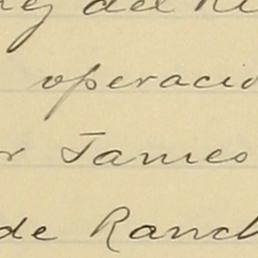 y del R
operacio
r James
de Ranch